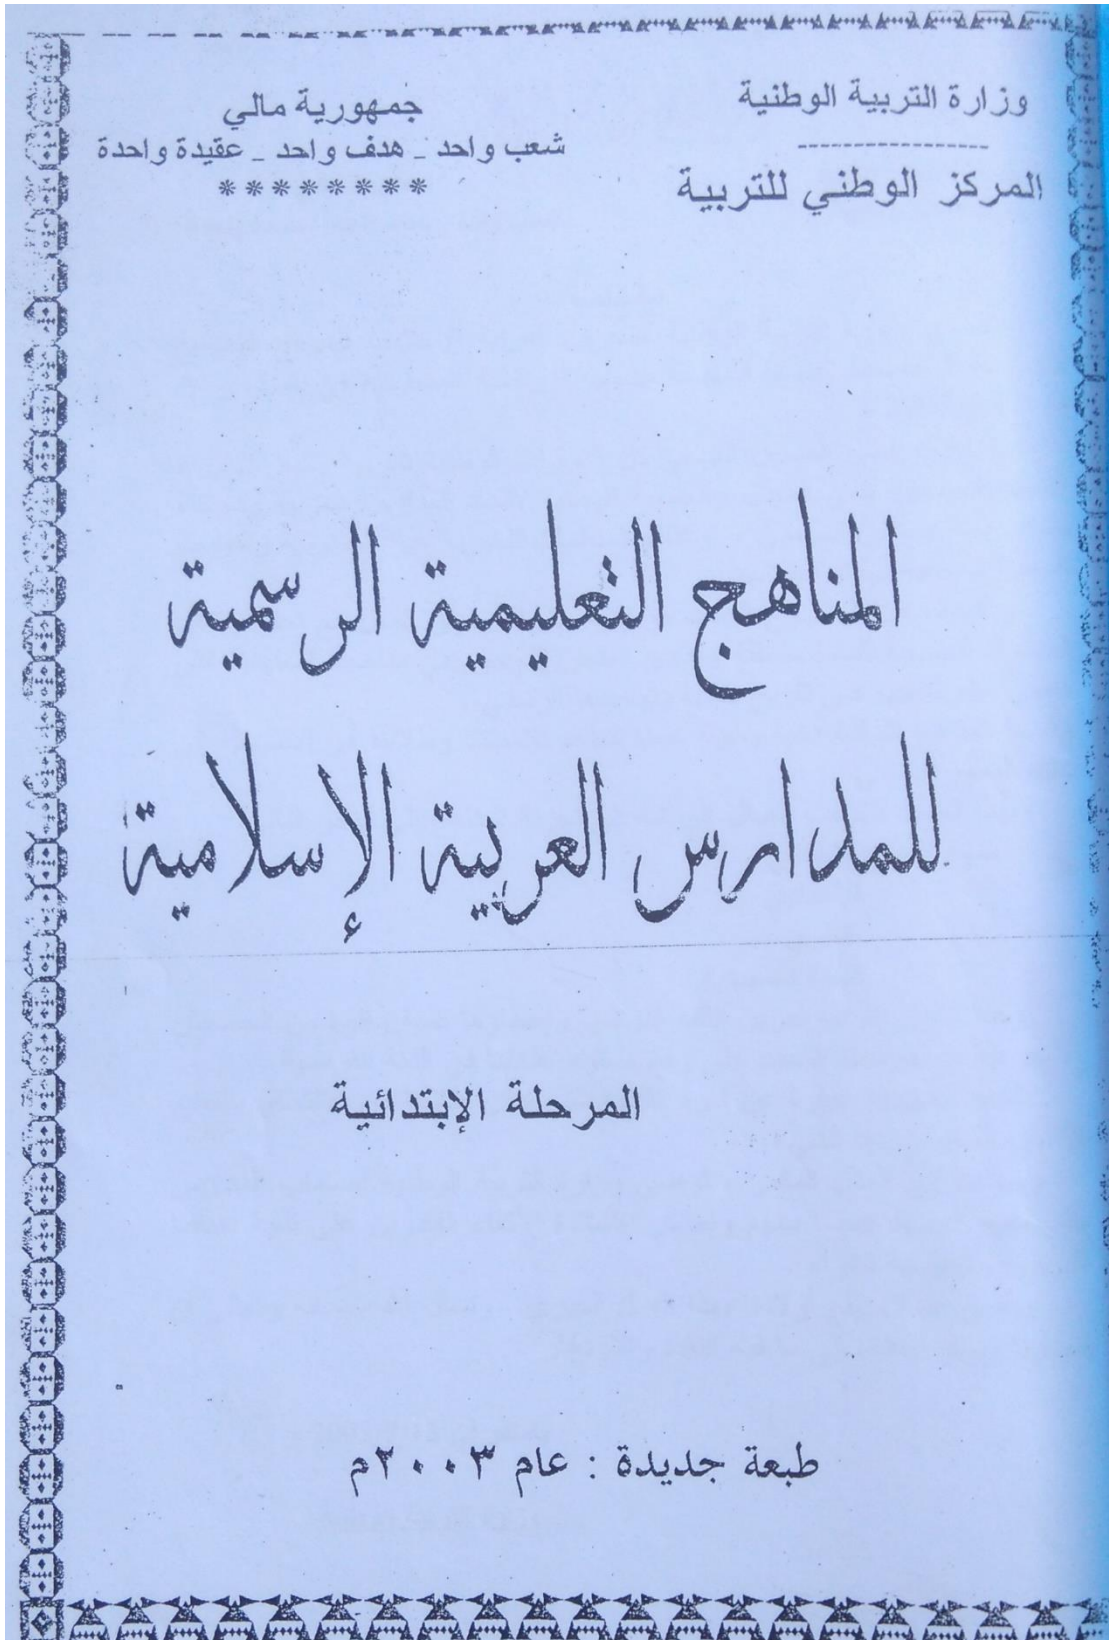 وزارة التربية الوطنية
-------------------
المركز الوطني للتربية
جمهورية مالي
شعب واحد _ هدف واحد _ عقيدة واحدة
********
المناهج التعليمية الرسمية
للمدارس العربية الإسلامية
المرحلة الإبتدائية
طبعة جديدة : عام ٢٠٠٣م